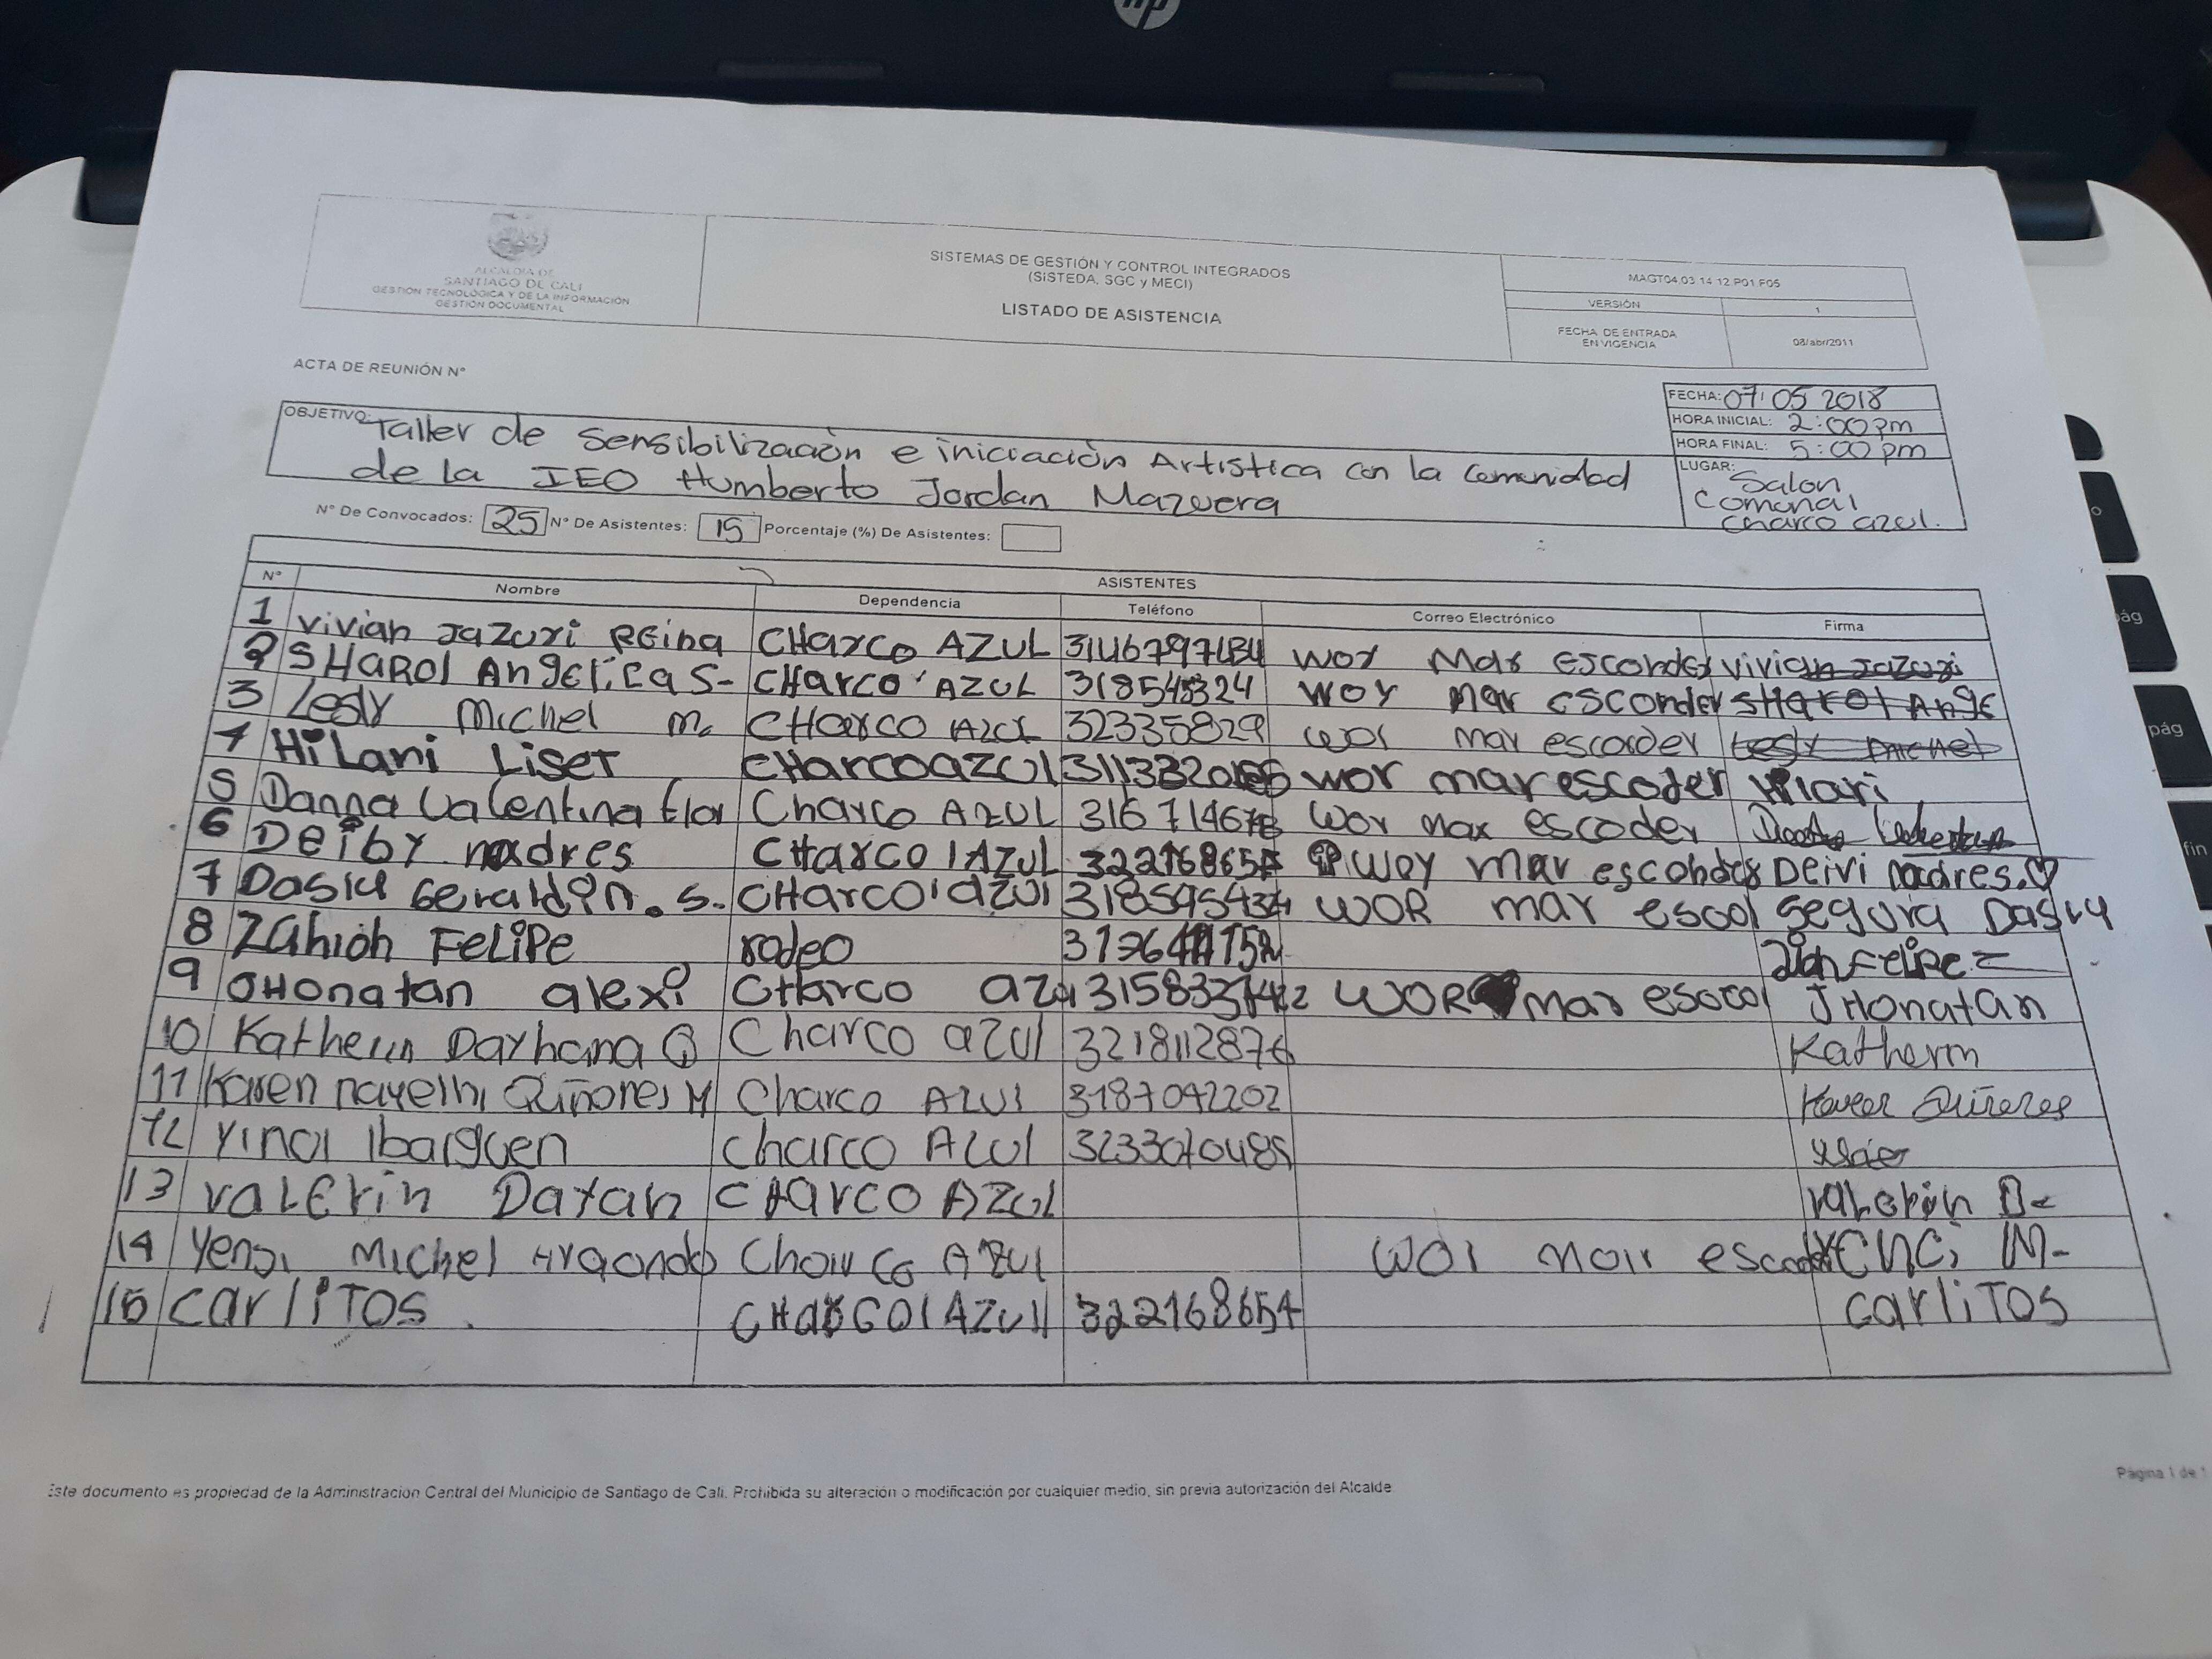 hp
ALCALDÍA DE
SANTIAGO DE CALI
GESTIÓN TECNOLÓGICA Y DE LA INFORMACIÓN
GESTIÓN DOCUMENTAL
SISTEMAS DE GESTIÓN Y CONTROL INTEGRADOS
(SISTEDA, SGC y MECI)
LISTADO DE ASISTENCIA
MAGT04.03.14.12.P01.F05
VERSIÓN 1
FECHA DE ENTRADA
EN VIGENCIA
08/abr/2011
ACTA DE REUNIÓN N°
FECHA: 07 05 2018
HORA INICIAL: 2:00 pm
HORA FINAL: 5:00 pm
LUGAR: Salon
Comunal
charco azul.
OBJETIVO: Taller de Sensibilización e iniciación Artistica con la Comunidad
de la IEO Humberto Jordan Mazuera
N° De Convocados: 25 N° De Asistentes: 15 Porcentaje (%) De Asistentes:
ASISTENTES
N° Nombre Dependencia Teléfono Correo Electrónico Firma
1 vivian Jazuri REina CHarco AZUL wor Mar esconder vivian Jazuri
2 SHAROL AngElica S- CHarco AZUL woy mar esconder SHarol Ange
3 Lesly Michel m. CHarco Azul 32335829 wor mar escorder Lesly michel
4 HiLani LiseT cHarcoazul wor mar escoder Hilari
5 Danna Valentina flor Charco AZUL wor max escoder
6 DEiby nadres CHarco AZUL woy mar esconder Deivi nadres.
7 Dasly Geraldin. S. CHarco azul WOR mar escol segura Dasly
8 FeLiPe rodeo Felipe
9 JHonatan alexi CHarco azul WOR mar escocol JHonatan
10 Katherin Dayhana Q Charco azul 3218112876 Katherin
11 Karen nayelhi Quiñones M Charco AZUl 3187042202 Karen Quiñones
12 Yinci Ibarguen Charco AZUl
13 vaLErin Datan CHarco AZUL vaLerin D
14 Yensi Michel Aragondo Charco AZUl wor mar M-
15 carliTOS. CHarco AZUl 322168654 carliTOS
Este documento es propiedad de la Administración Central del Municipio de Santiago de Cali. Prohibida su alteración o modificación por cualquier medio, sin previa autorización del Alcalde.
Página 1 de 1
pág
pág
fin